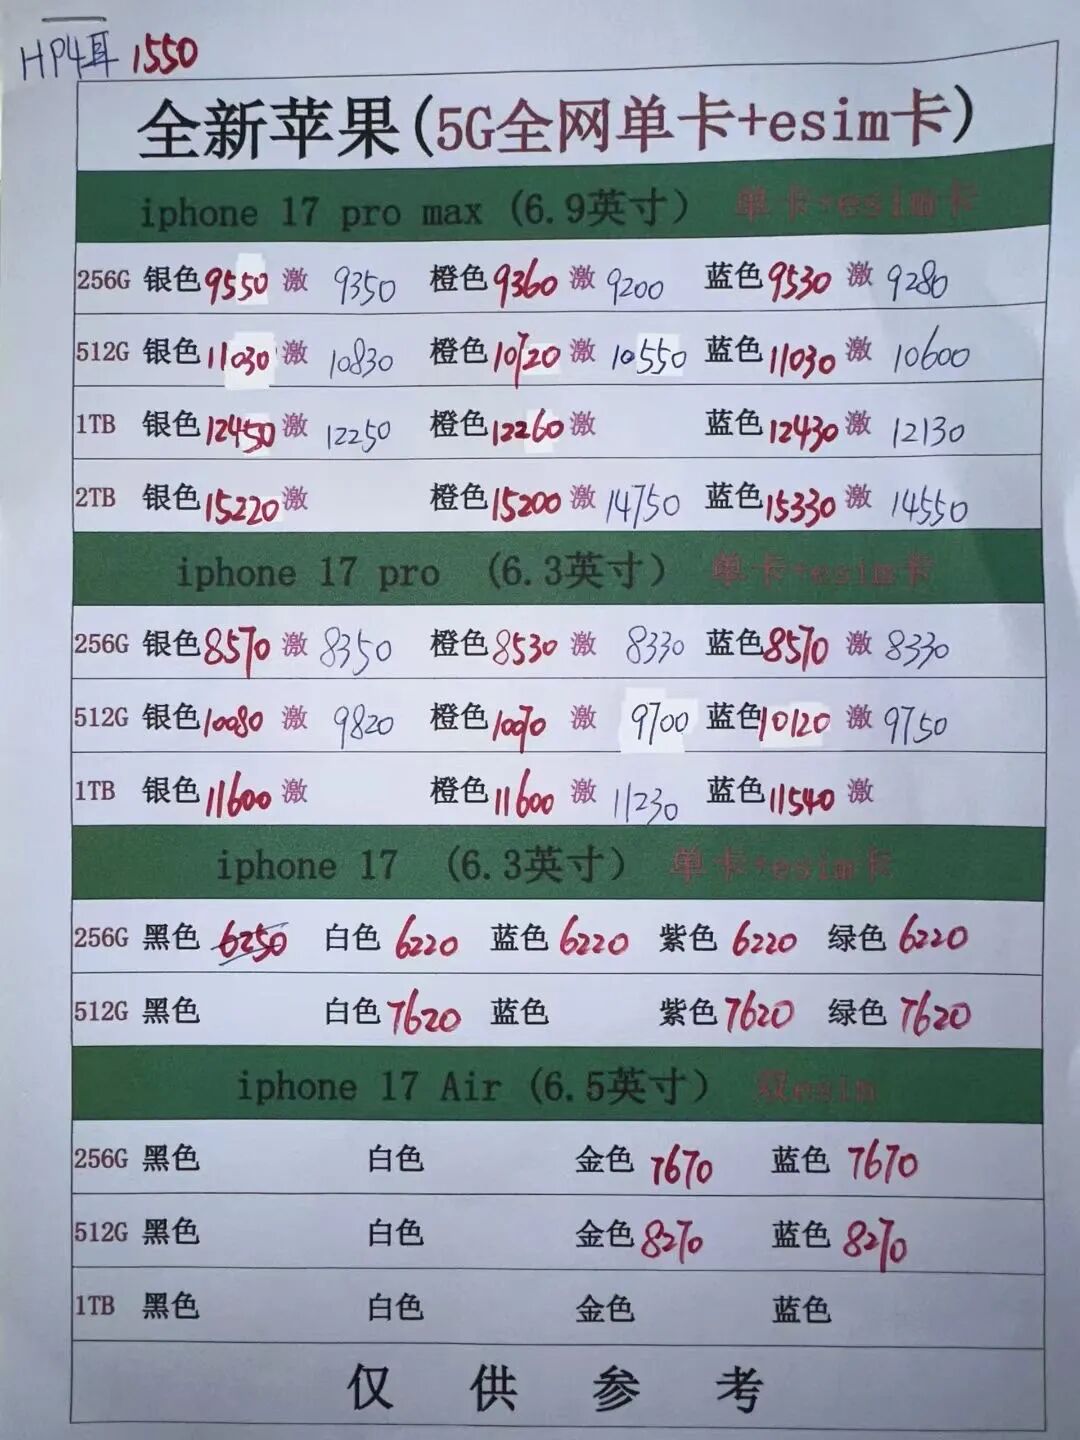 HP4耳 1550
全新苹果(5G全网单卡+esim卡)
iphone 17 pro max (6.9英寸) 单卡+esim卡
256G 银色 9550 激 9350 橙色 9360 激 9200 蓝色 9530 激 9280
512G 银色 11030 激 10830 橙色 10720 激 10550 蓝色 11030 激 10600
1TB 银色 12450 激 12250 橙色 12260 激 蓝色 12430 激 12130
2TB 银色 15220 激 橙色 15200 激 14750 蓝色 15330 激 14550
iphone 17 pro (6.3英寸) 单卡+esim卡
256G 银色 8570 激 8350 橙色 8530 激 8330 蓝色 8570 激 8330
512G 银色 10080 激 9820 橙色 10070 激 9700 蓝色 10120 激 9750
1TB 银色 11600 激 橙色 11600 激 11230 蓝色 11540 激
iphone 17 (6.3英寸) 单卡+esim卡
256G 黑色 6250 白色 6220 蓝色 6220 紫色 6220 绿色 6220
512G 黑色 白色 7620 蓝色 紫色 7620 绿色 7620
iphone 17 Air (6.5英寸) 双esim
256G 黑色 白色 金色 7670 蓝色 7670
512G 黑色 白色 金色 8270 蓝色 8270
1TB 黑色 白色 金色 蓝色
仅供参考